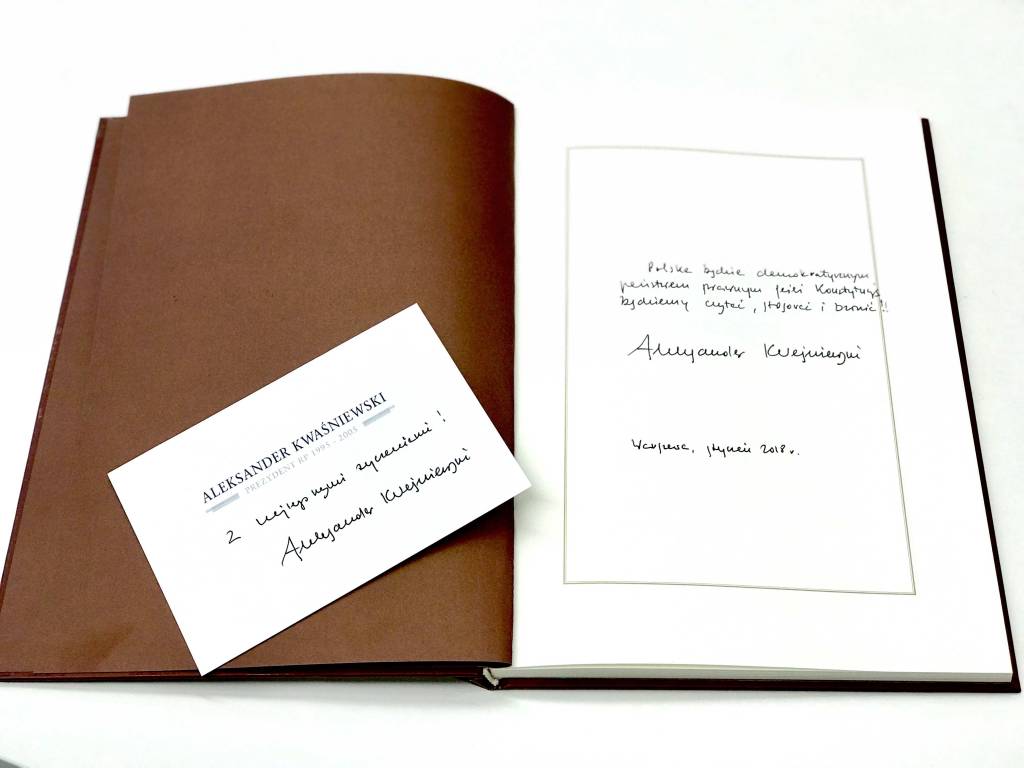 ALEKSANDER KWAŚNIEWSKI
PREZYDENT RP 1995 - 2005
Z najlepszymi życzeniami!
Aleksander Kwaśniewski
Polska będzie demokratycznym
państwem prawnym jeśli Konstytucję
będziemy czytać, stosować i bronić!!
Aleksander Kwaśniewski
Warszawa, styczeń 2018 r.